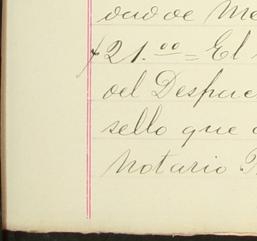 dad de Me
$21.00 = El
del Despac
sello que
Notario P